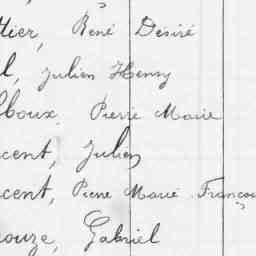 ttier, René Désiré
l, Julien Henry
lboux, Pierre Marie
cent, Julien
cent, Pierre Marie Françoi
ouze, Gabriel